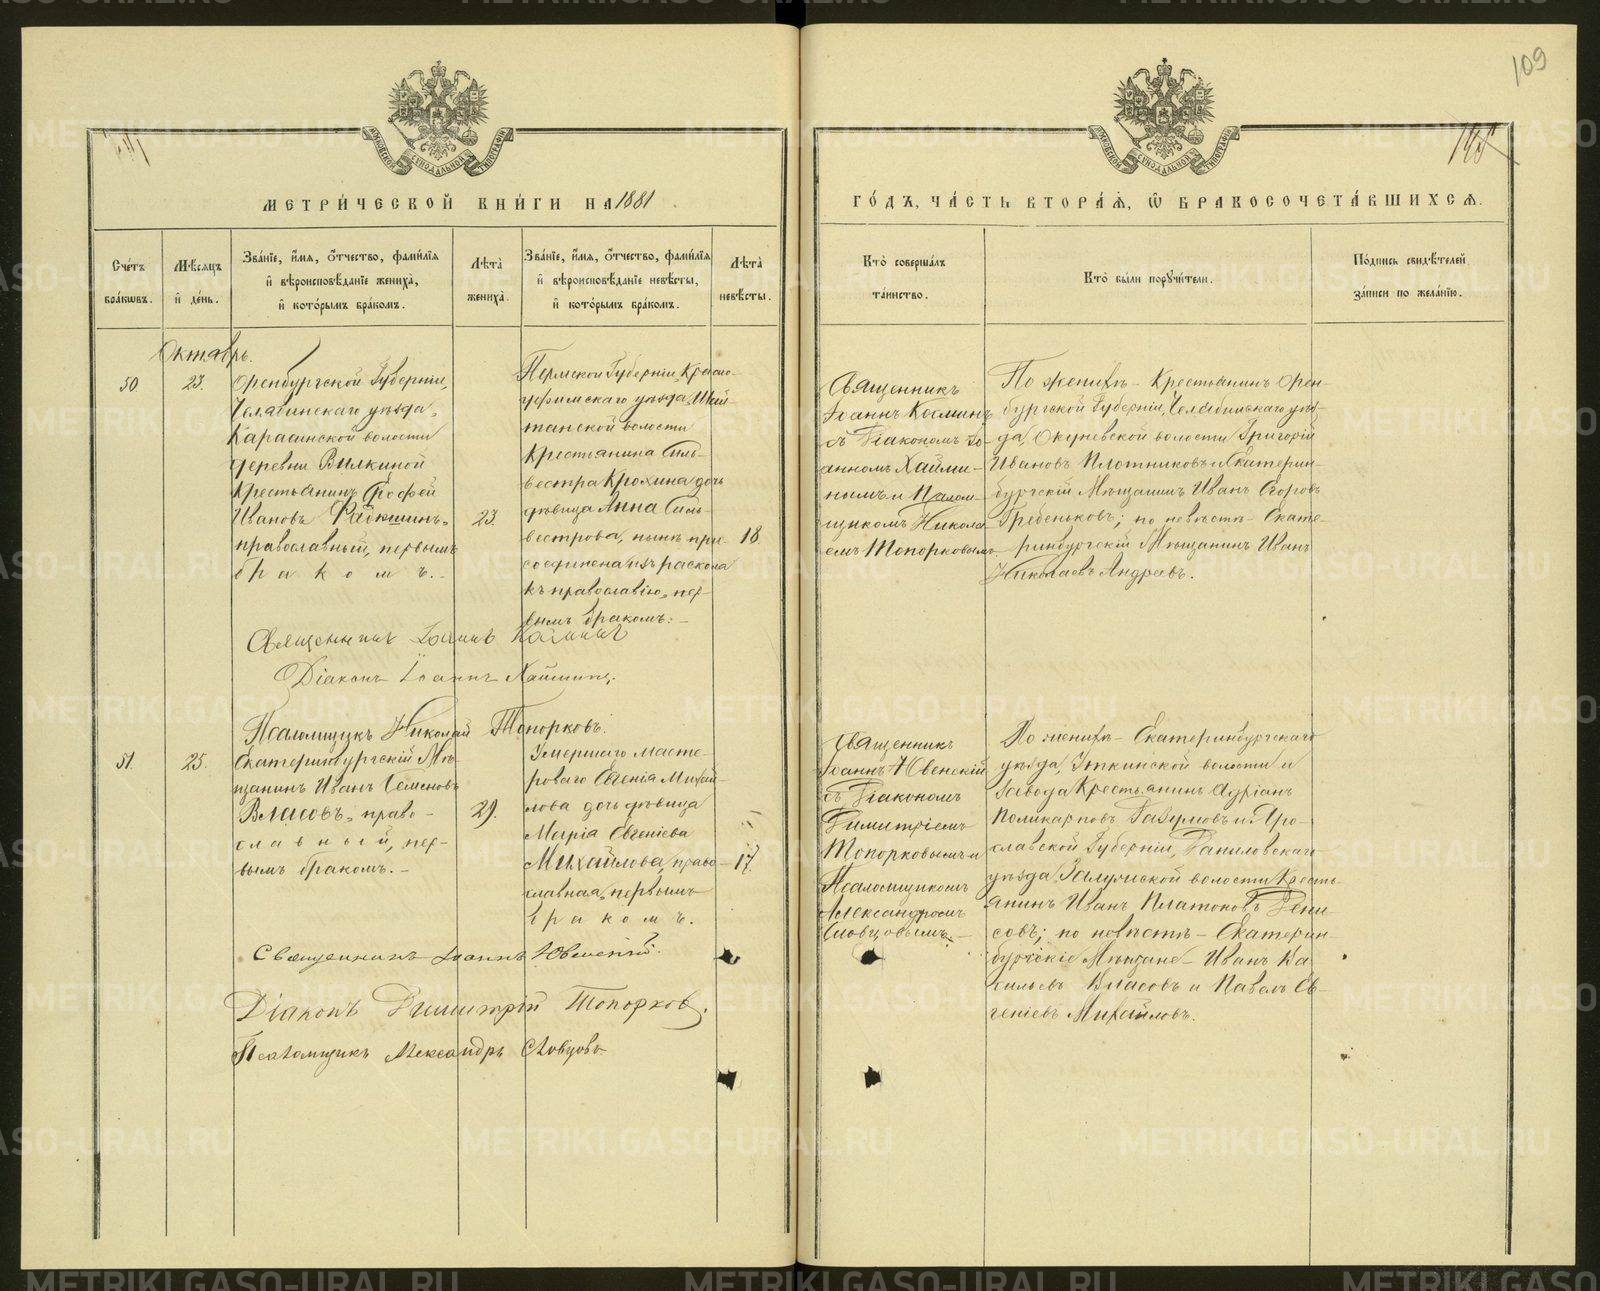 109
145
МЕТРИЧЕСКОЙ КНИГИ НА 1881
ГОДЪ, ЧАСТЬ ВТОРАЯ, Ѡ БРАКОСОЧЕТАВШИХСЯ.
Счетъ браковъ.
Мѣсяцъ и день.
Званіе, имя, отчество, фамилія и вѣроисповѣданіе жениха, и которымъ бракомъ.
Лѣта жениха.
Званіе, имя, отчество, фамилія и вѣроисповѣданіе невѣсты, и которымъ бракомъ.
Лѣта невѣсты.
Кто совершалъ таинство.
Кто были поручители.
Подпись свидѣтелей записи по желанію.
Октябрь.
50
23.
Оренбургской Губерніи,
Челябинскаго уѣзда,
Карасинской волости
деревни Вилкиной
Крестьянинъ Ерофей
Ивановъ
православный, первымъ
бракомъ.
23.
Пермской Губерніи, Красно-
уфимскаго уѣзда, Шай-
танской волости
Крестьянина Силь-
вестра Крохина дочь
дѣвица Анна Силь-
вестрова, нынѣ при-
соединена изъ раскола
къ православію, пер-
вымъ бракомъ.
18.
Священникъ
Іоаннъ Косминъ
съ Діакономъ Іо-
анномъ Хайми-
нымъ и Псалом-
щикомъ Никола-
емъ Топорковымъ.
По женихѣ - Крестьянинъ Орен-
бургской Губерніи, Челябинскаго уѣз-
да, Окуневской волости Григорій
Ивановъ Плотниковъ и Екатерин-
бургскій Мѣщанинъ Иванъ Егоровъ
Гребеньковъ; по невѣстѣ - Екате-
ринбургскій Мѣщанинъ Иванъ
Николаевъ Андреевъ.
Священникъ Іоаннъ Косминъ
Діаконъ Іоаннъ Хайминъ.
Псаломщикъ Николай Топорковъ.
51.
25.
Екатеринбургскій Мѣ-
щанинъ Иванъ Семеновъ
Власовъ, право-
славный, пер-
вымъ бракомъ.
29.
Умершаго масте-
роваго Евгенія Михай-
лова дочь дѣвица
Марія Евгеніева
Михайлова, право-
славная, первымъ
бракомъ.
17.
Священникъ
Іоаннъ Ювенскій
съ Діакономъ
Димитріемъ
Топорковымъ и
Псаломщикомъ
Александромъ
Словцовымъ.
По женихѣ - Екатеринбургскаго
уѣзда, Уткинской волости и
завода Крестьянинъ Адріанъ
Поликарповъ и Яро-
славской Губерніи, Даниловскаго
уѣзда, волости Кресть-
янинъ Иванъ Платоновъ Дени-
совъ; по невѣстѣ - Екатерин-
бургскіе Мѣщане - Иванъ Ва-
сильевъ Власовъ и Павелъ Ев-
геніевъ Михайловъ.
Священникъ Іоаннъ Ювенскій.
Діаконъ Димитрій Топорковъ.
Псаломщикъ Александръ Словцовъ